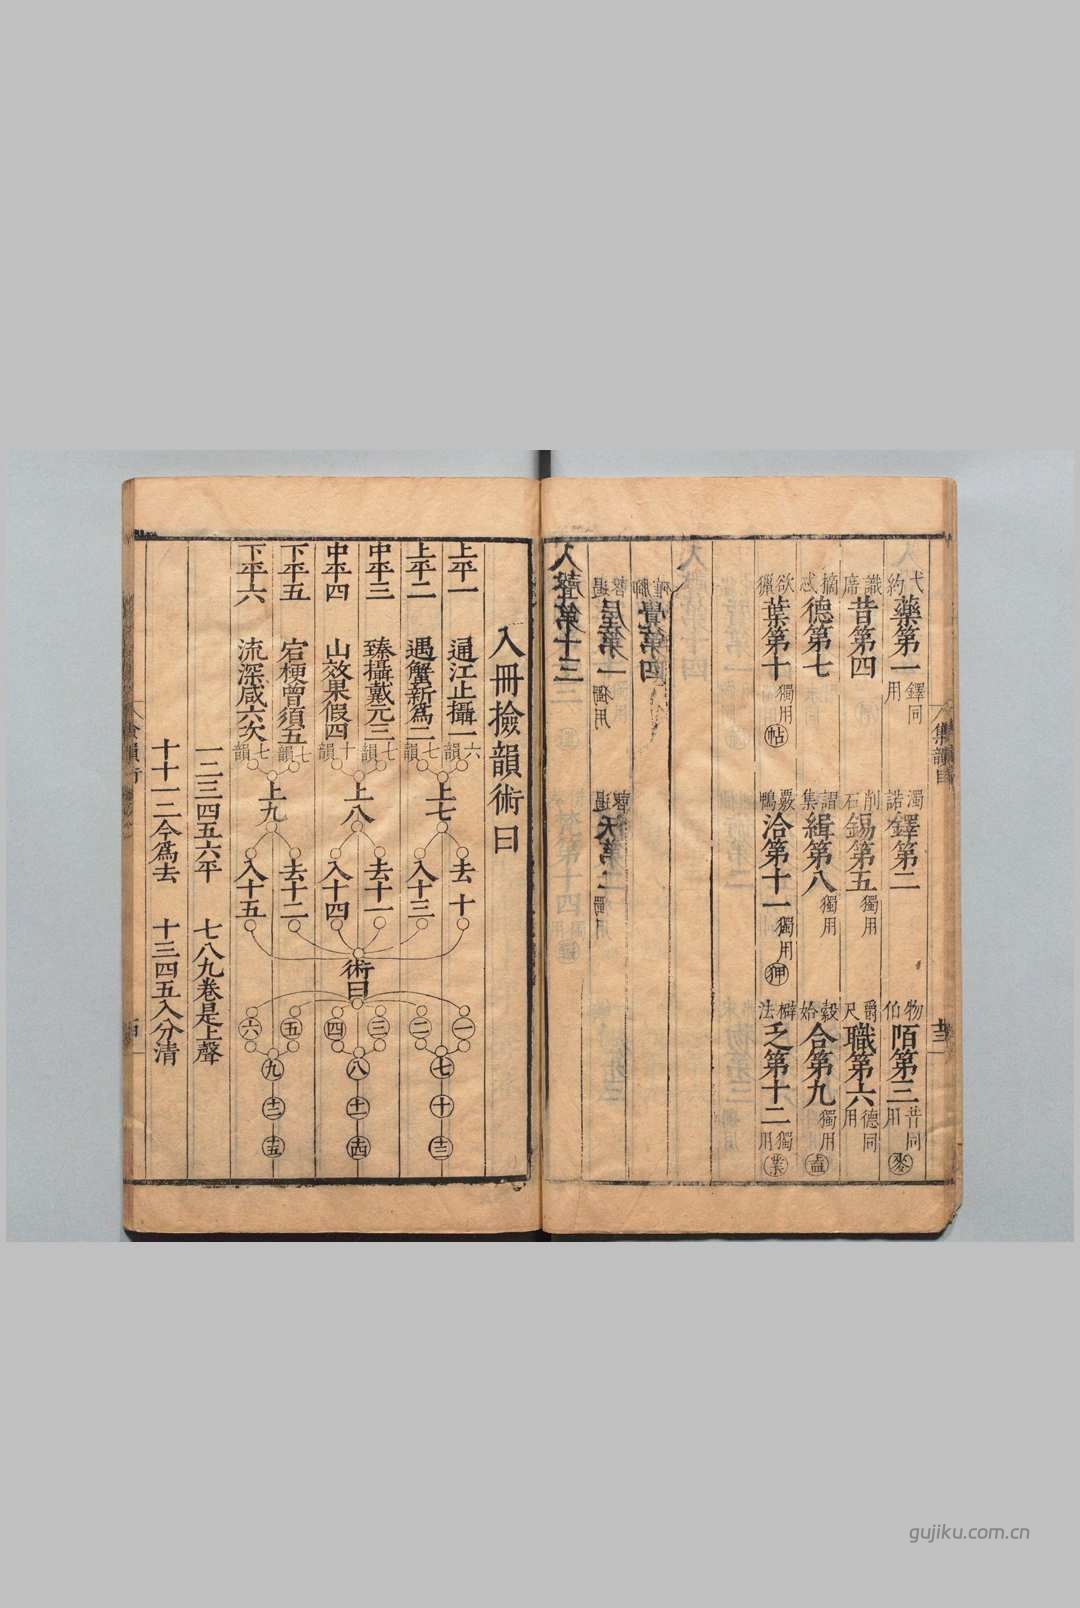 弋約藥第一鐸同用
濁諾鐸第二
物伯陌第三昔同用麥
識席昔第四
削石錫第五獨用
爵尺職第六德同用
摘惑德第七
謂集緝第八獨用
穀始合第九獨用盍
欲獵葉第十獨用帖
覈鴨洽第十一獨用狎
檘法乏第十二獨用業
集韻目
入聲第十三
屋第一獨用
沃第二獨用
覺第四
入冊撿韻術曰
上平一 通江止攝一 六韻
上平二 遇蟹新爲二 七韻
中平三 臻攝戴元三 七韻
中平四 山效果假四 十韻
下平五 宕梗曾須五 七韻
下平六 流深咸六次 七韻
上七 去十 入十三
上八 去十一 入十四
上九 去十二 入十五
術曰
一 二 七 十 十三
三 四 八 十一 十四
五 六 九 十二 十五
一二三四五六平 七八九卷是上聲
十十一二今爲去 十三四五入分清
gujiku.com.cn